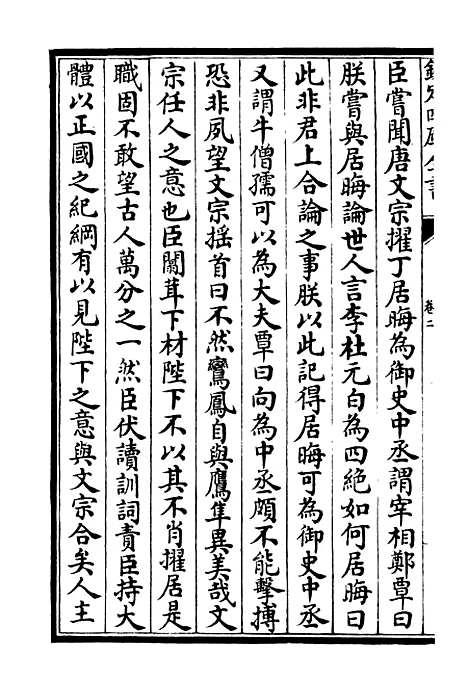 欽定四庫全書
卷二
臣嘗聞唐文宗擢丁居晦為御史中丞謂宰相鄭覃曰
朕嘗與居晦論世人言李杜元白為四絶如何居晦曰
此非君上合論之事朕以此記得居晦可為御史中丞
又謂牛僧孺可以為大夫覃曰向為中丞頗不能擊搏
恐非夙望文宗揺首曰不然鸞鳳自與鷹隼異美哉文
宗任人之意也臣闒茸下材陛下不以其不肖擢居是
職固不敢望古人萬分之一然臣伏讀訓詞責臣持大
體以正國之紀綱有以見陛下之意與文宗合矣人主